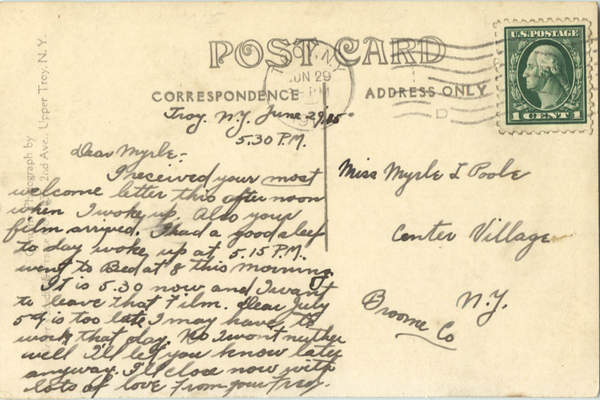 POST CARD
CORRESPONDENCE
ADDRESS ONLY
U.S.POSTAGE
1 CENT 1
JUN 29
PM
D
2nd Ave., Upper Troy N. Y.
Troy. N.Y. June 29,
5.30 P.M.
Dear Myrle:-
I received your most
welcome letter this afternoon
when I woke up. Also your
film arrived. I had a good sleep
to day woke up at 5.15 P.M.
went to Bed at 8 this morning
It is 5.30 now and I want
to leave that Film. Dear July
5th is too late I may have to
work that day. No I wont nuther
well I'll let you know later
anyway. I'll close now with
lots of love From your
Miss Myrle I Poole
Center Village
Broome Co
N.Y.